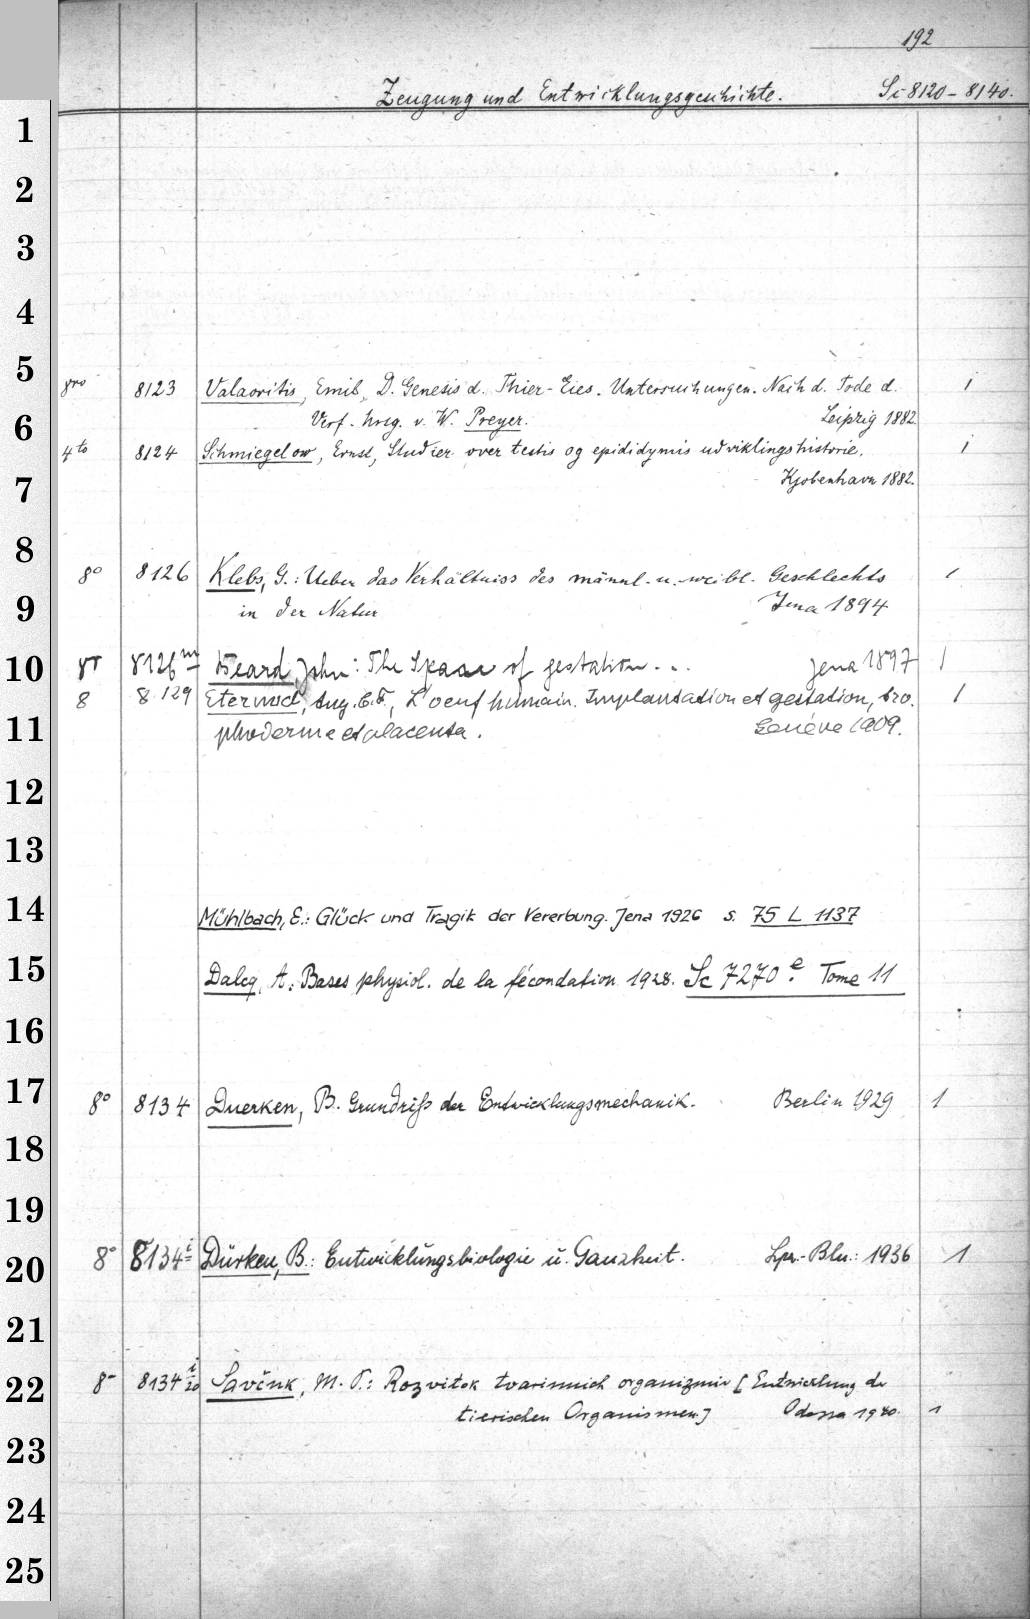 192
Zeugung und Entwicklungsgeschichte. Sc 8120 - 8140.
1
2
3
4
5
8vo 8123 Valaoritis, Emil, D. Genesis d. Thier-Eies. Untersuchungen. Nach d. Tode d. 1
6 Verf. hrsg. v. W. Preyer. Leipzig 1882.
4to 8124 Schmiegelow, Ernst, Studier over testis og epididymis udviklingshistorie. 1
7 Kjobenhavn 1882.
8
8° 8126 Klebs, G.: Ueber das Verhältniss des männl. u. weibl. Geschlechts 1
9 in der Natur Jena 1894
10 8° 8126m Beard, John: The Span of gestation ... Jena 1897 1
8 8129 Eternod, Aug. C. F., L'oeuf humain. Implantation et gestation, tro-
11 phoderme et placenta. Genève 1909. 1
12
13
14 Mühlbach, E.: Glück und Tragik der Vererbung. Jena 1926 s. 75 L 1137
15 Dalcq, A.: Bases physiol. de la fécondation 1928. Sc 7270e. Tome 11
16
17 8° 8134 Duerken, B. Grundriß der Entwicklungsmechanik. Berlin 1929 1
18
19
20 8° 8134i Dürken, B.: Entwicklungsbiologie u. Ganzheit. Lpz.-Bln.: 1936 1
21
22 8° 8134i/20 Savčuk, M. P.: Rozvitok tvarinnich organizmiv [Entwicklung der
tierischen Organismen.] Odessa 1940. 1
23
24
25